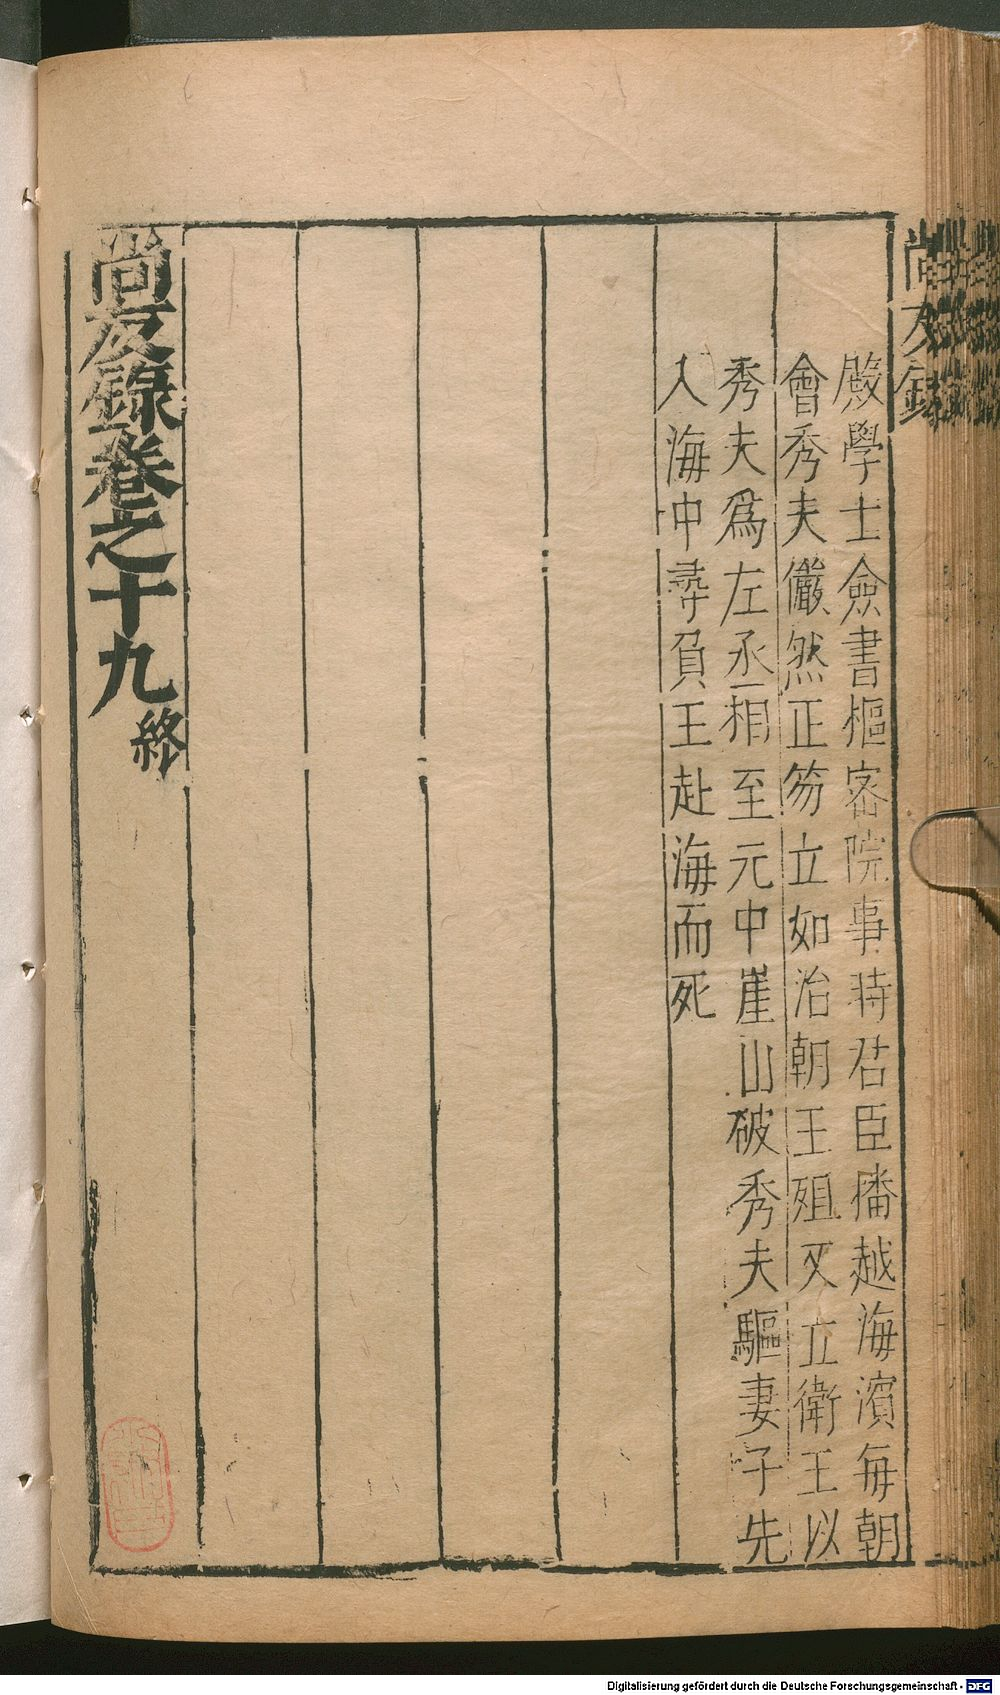 尚友錄
殿學士僉書樞密院事時君臣播越海濱每朝
會秀夫儼然正笏立如治朝王殂又立衛王以
秀夫爲左丞相至元中崖山破秀夫驅妻子先
入海中尋負王赴海而死
尚友錄卷之十九終
Digitalisierung gefördert durch die Deutsche Forschungsgemeinschaft - DFG